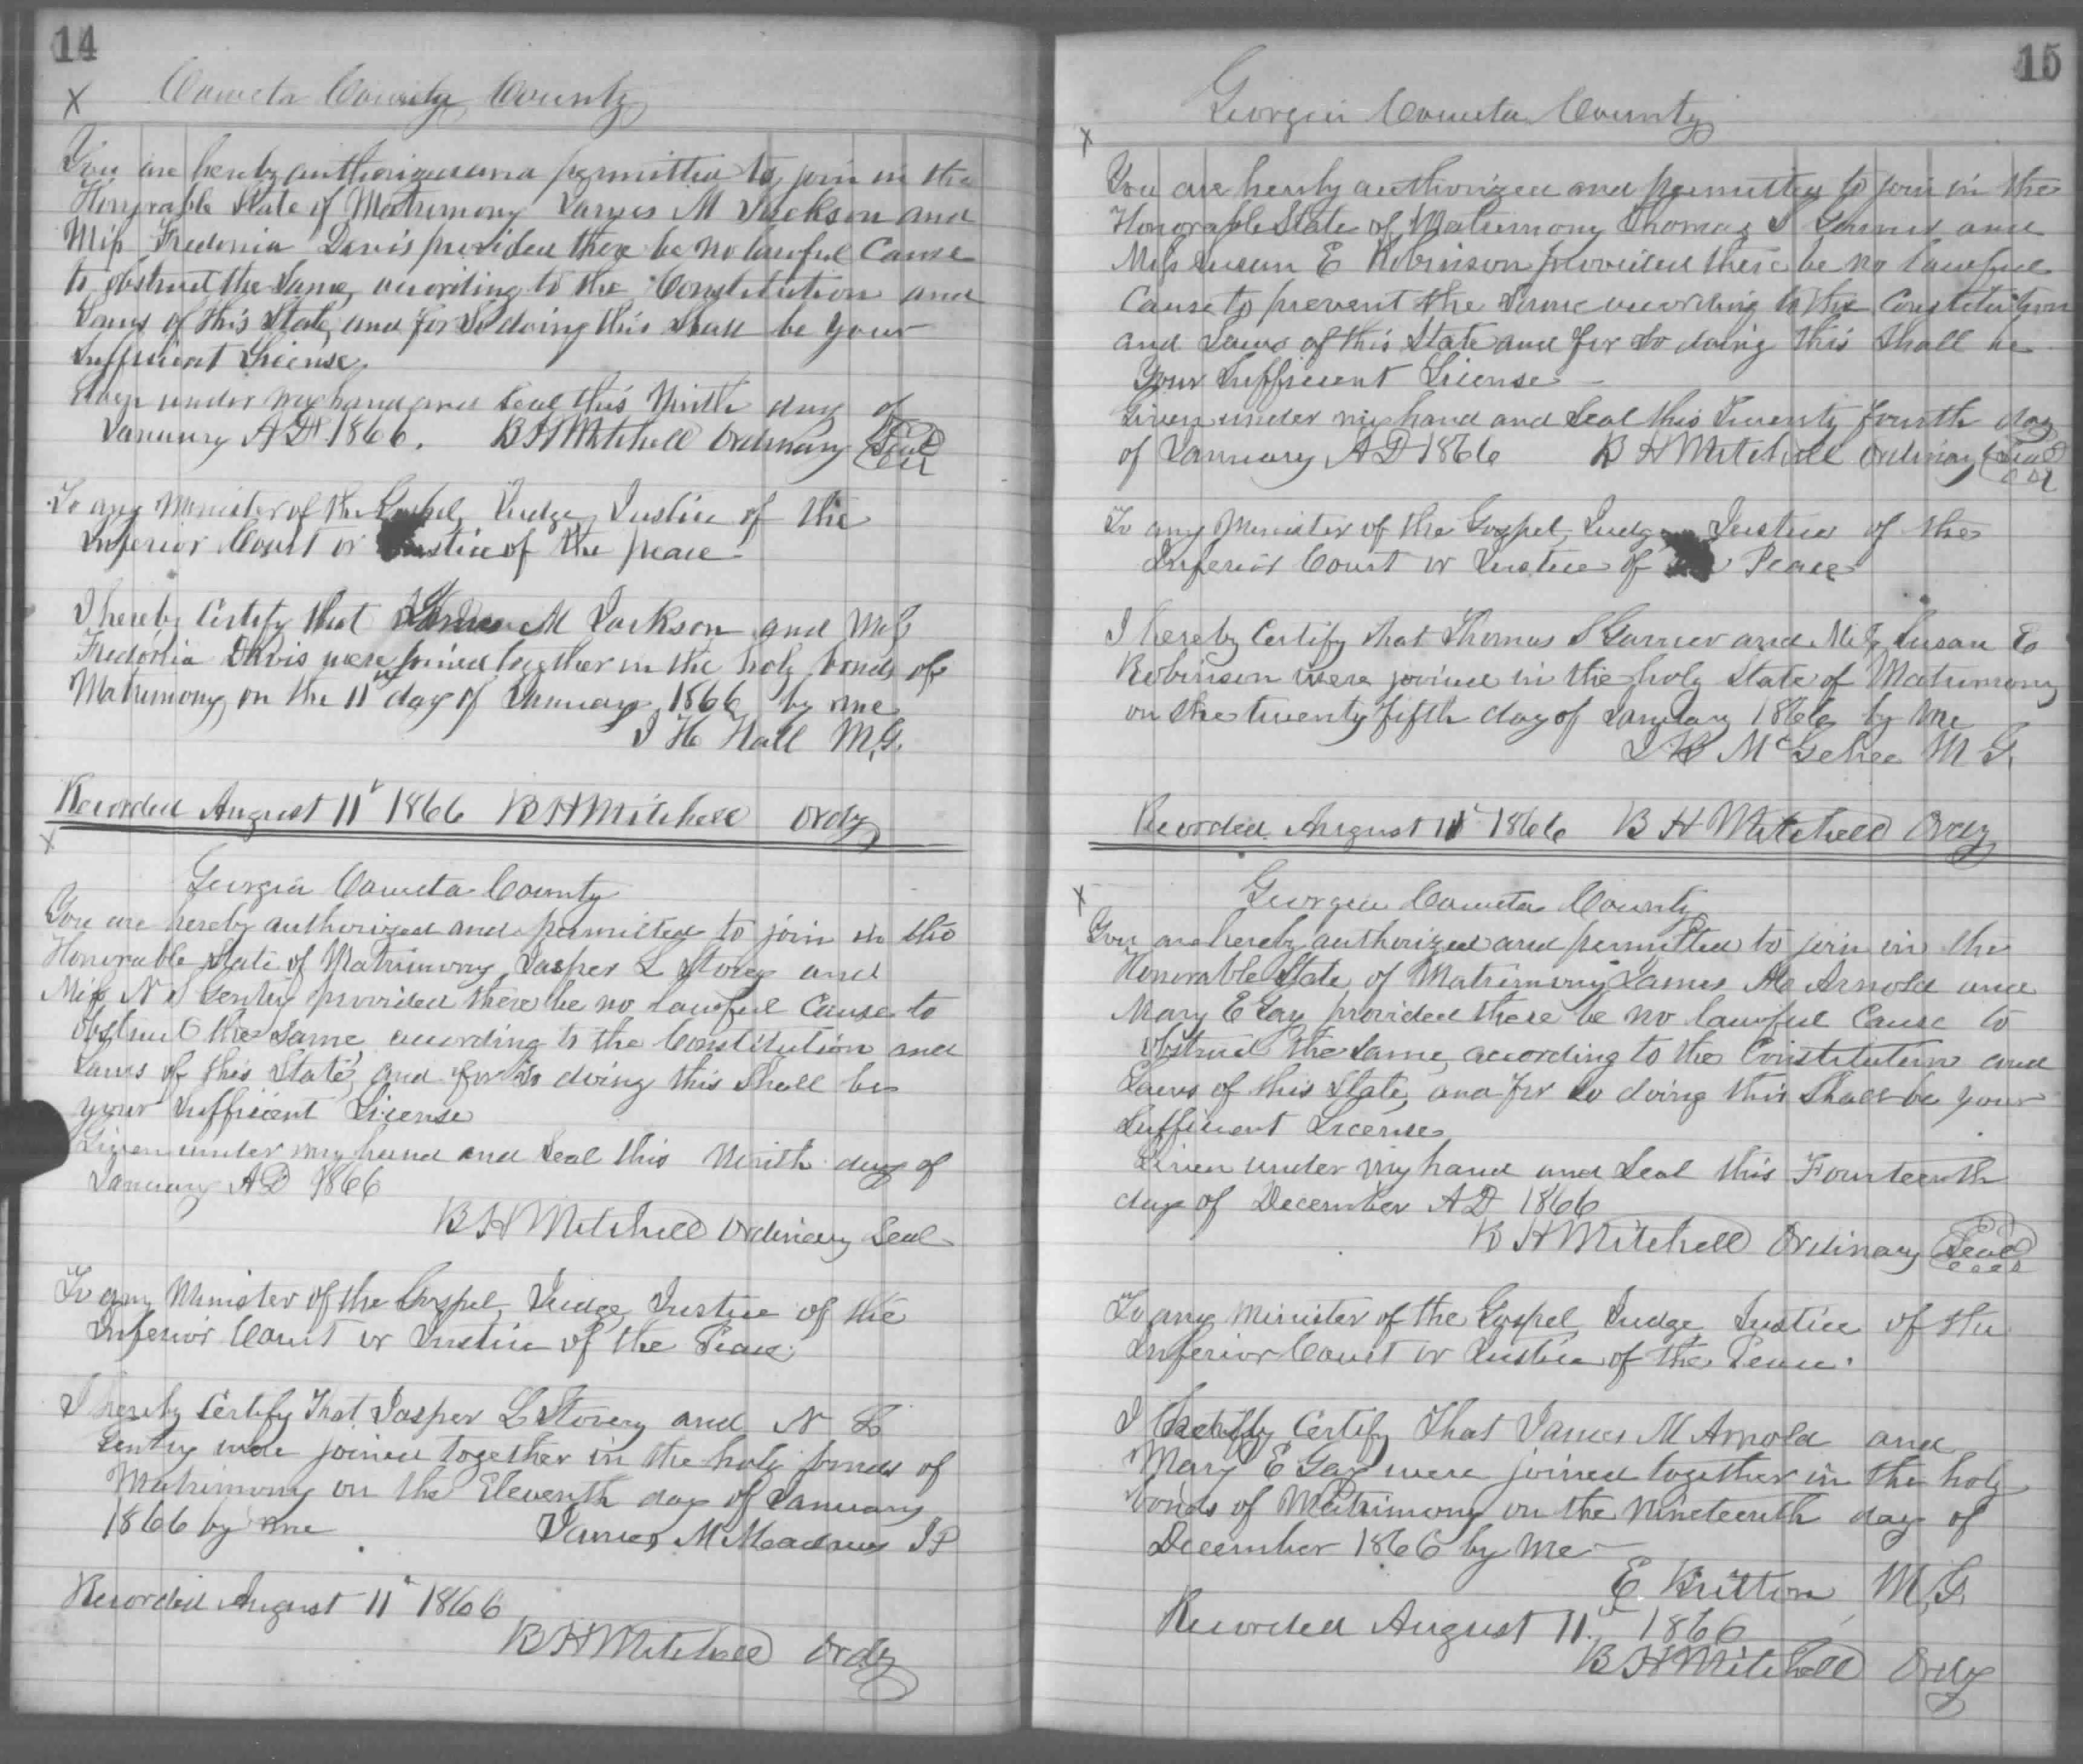 14
X Coweta County County
You are hereby authorized and permitted to join in the
Honorable State of Matrimony James M Jackson and
Miss Fredonia Davis provided there be no lawful Cause
to obstruct the Same, according to the Constitution and
Laws of this State, and for So doing this Shall be your
Sufficient License.
Given under my hand and Seal this Ninth day of
January AD 1866. B H Mitchell Ordinary Seal
To any Minister of the Gospel, Judge, Justice of the
Inferior Court or Justice of the peace
I hereby Certify that James M Jackson and Miss
Fredonia Davis were joined together in the holy bonds of
Matrimony, on the 11th day of January 1866 by me
J H Hall M.G.
Recorded August 11th 1866 B H Mitchell Ordy
X
Georgia Coweta County
You are hereby authorized and permitted to join in the
Honorable State of Matrimony Jasper L Storey and
Miss N Gentry provided there be no lawful Cause to
Obstruct the Same according to the Constitution and
Laws of this State, and for So doing this Shall be
your Sufficient License
Given under my hand and Seal this Ninth day of
January AD 1866
B H Mitchell Ordinary Seal
To any Minister of the Gospel, Judge, Justice of the
Inferior Court or Justice of the Peace.
I hereby Certify That Jasper L Storey and N
Gentry were joined together in the holy bonds of
Matrimony on the Eleventh day of January
1866 by me James M Meadows JP
Recorded August 11th 1866
B H Mitchell Ordy
15
Georgia Coweta County
X
You are hereby authorized and permitted to join in the
Honorable State of Matrimony Thomas S Garner and
Miss Susan E Robinson provided there be no lawful
Cause to prevent the Same according to the Constitution
and Laws of this State and for So doing this Shall be
Your Sufficient License
Given under my hand and Seal this Twenty Fourth day
of January AD 1866 B H Mitchell Ordinary Seal
To any Minister of the Gospel, Judge Justice of the
Inferior Court or Justice of Peace
I hereby Certify that Thomas S Garner and Miss Susan E
Robinson were joined in the holy State of Matrimony
on the twenty fifth day of January 1866 by me
McGehee M G.
Recorded August 11th 1866 B H Mitchell Ordy
X Georgia Coweta County
You are hereby authorized and permitted to join in the
Honorable State of Matrimony James M Arnold and
Mary E Gay provided there be no lawful Cause to
Obstruct the Same, according to the Constitution and
Laws of this State, and for So doing this Shall be your
Sufficient License
Given under my hand and Seal this Fourteenth
day of December AD 1866
B H Mitchell Ordinary Seal
To any Minister of the Gospel Judge Justice of the
Inferior Court or Justice of the Peace.
I Certify That James M Arnold and
Mary E Gay were joined together in the holy
bonds of Matrimony on the Nineteenth day of
December 1866 by Me
E Britton M.G.
Recorded August 11th 1866
B H Mitchell Ordy